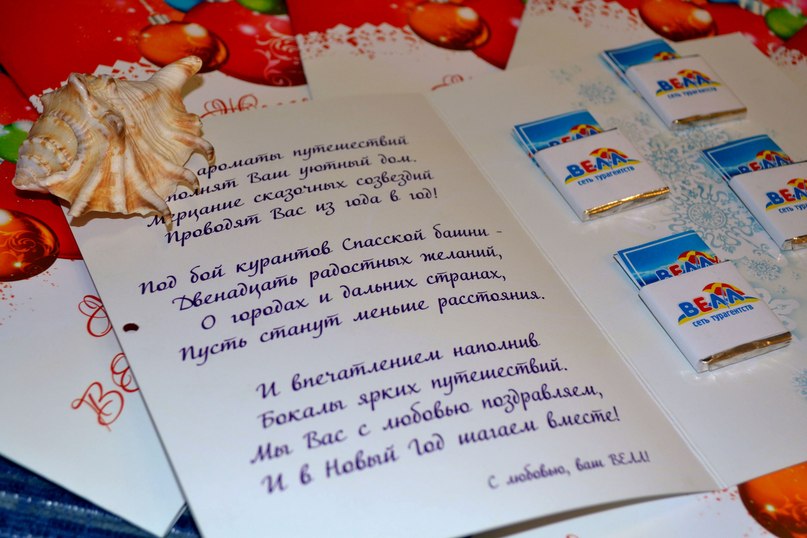 ароматы путешествий
Ваш уютный дом.
Мерцание сказочных созвездий
Проводят Вас из года в год!
Под бой курантов Спасской башни -
Двенадцать радостных желаний,
О городах и дальних странах,
Пусть станут меньше расстояния.
И впечатлением наполнив
Бокалы ярких путешествий.
Мы Вас с любовью поздравляем,
И в Новый Год шагаем вместе!
С любовью, ваш ВЕЛЛ!
ВЕЛЛ
сеть турагентств
ВЕЛЛ
сеть турагентств
ВЕЛЛ
сеть турагентств
ВЕЛЛ
сеть турагентств